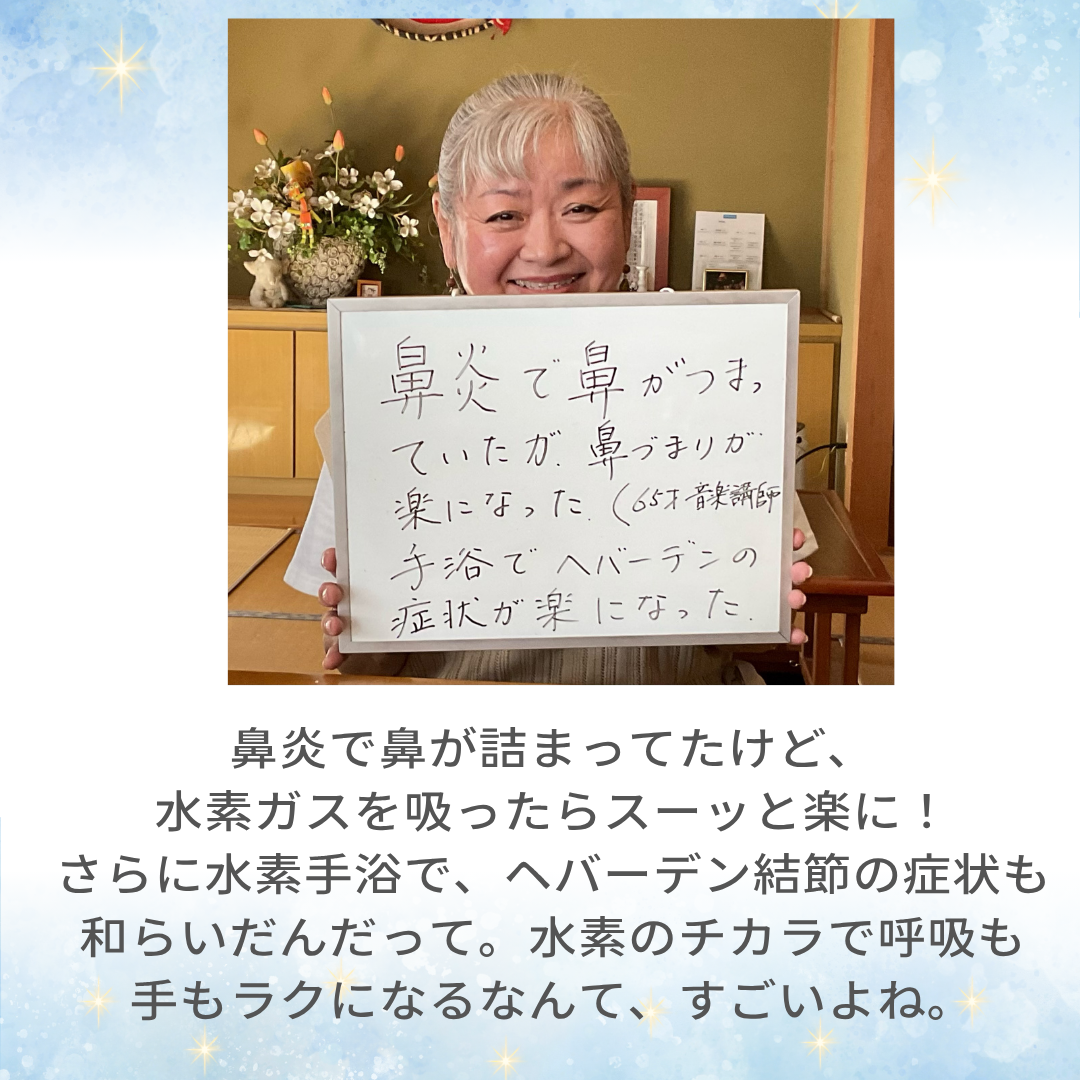 鼻炎で鼻がつまっ
ていたが、鼻づまりが
楽になった。(65才音楽講師
手浴でヘバーデンの
症状が楽になった。
鼻炎で鼻が詰まってたけど、
水素ガスを吸ったらスーッと楽に！
さらに水素手浴で、ヘバーデン結節の症状も
和らいだんだって。水素のチカラで呼吸も
手もラクになるなんて、すごいよね。